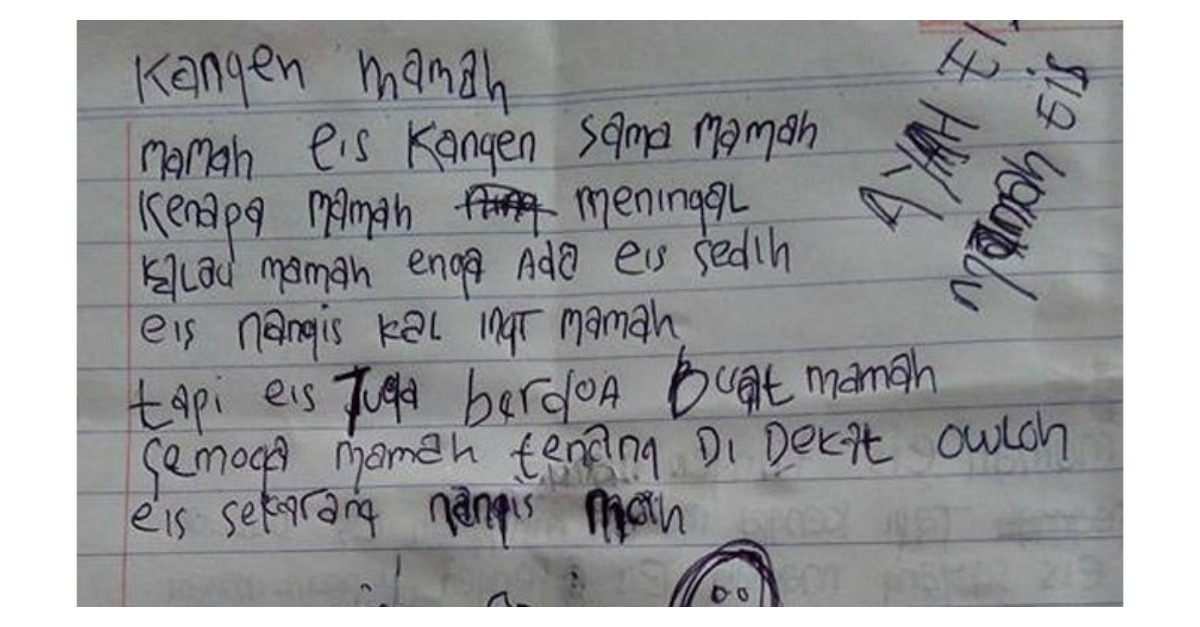 Kangen mamah
mamah eis Kangen sama mamah
Kenapa mamah meningaL
kaLau mamah enga Ada eis sedih
eis nangis kaL ingT mamah
tapi eis Juga berdoA Buat mamah
semoga mamah tenang Di Dekat owloh
eis sekarang nangis moih
AYAH EI
Mamah eis